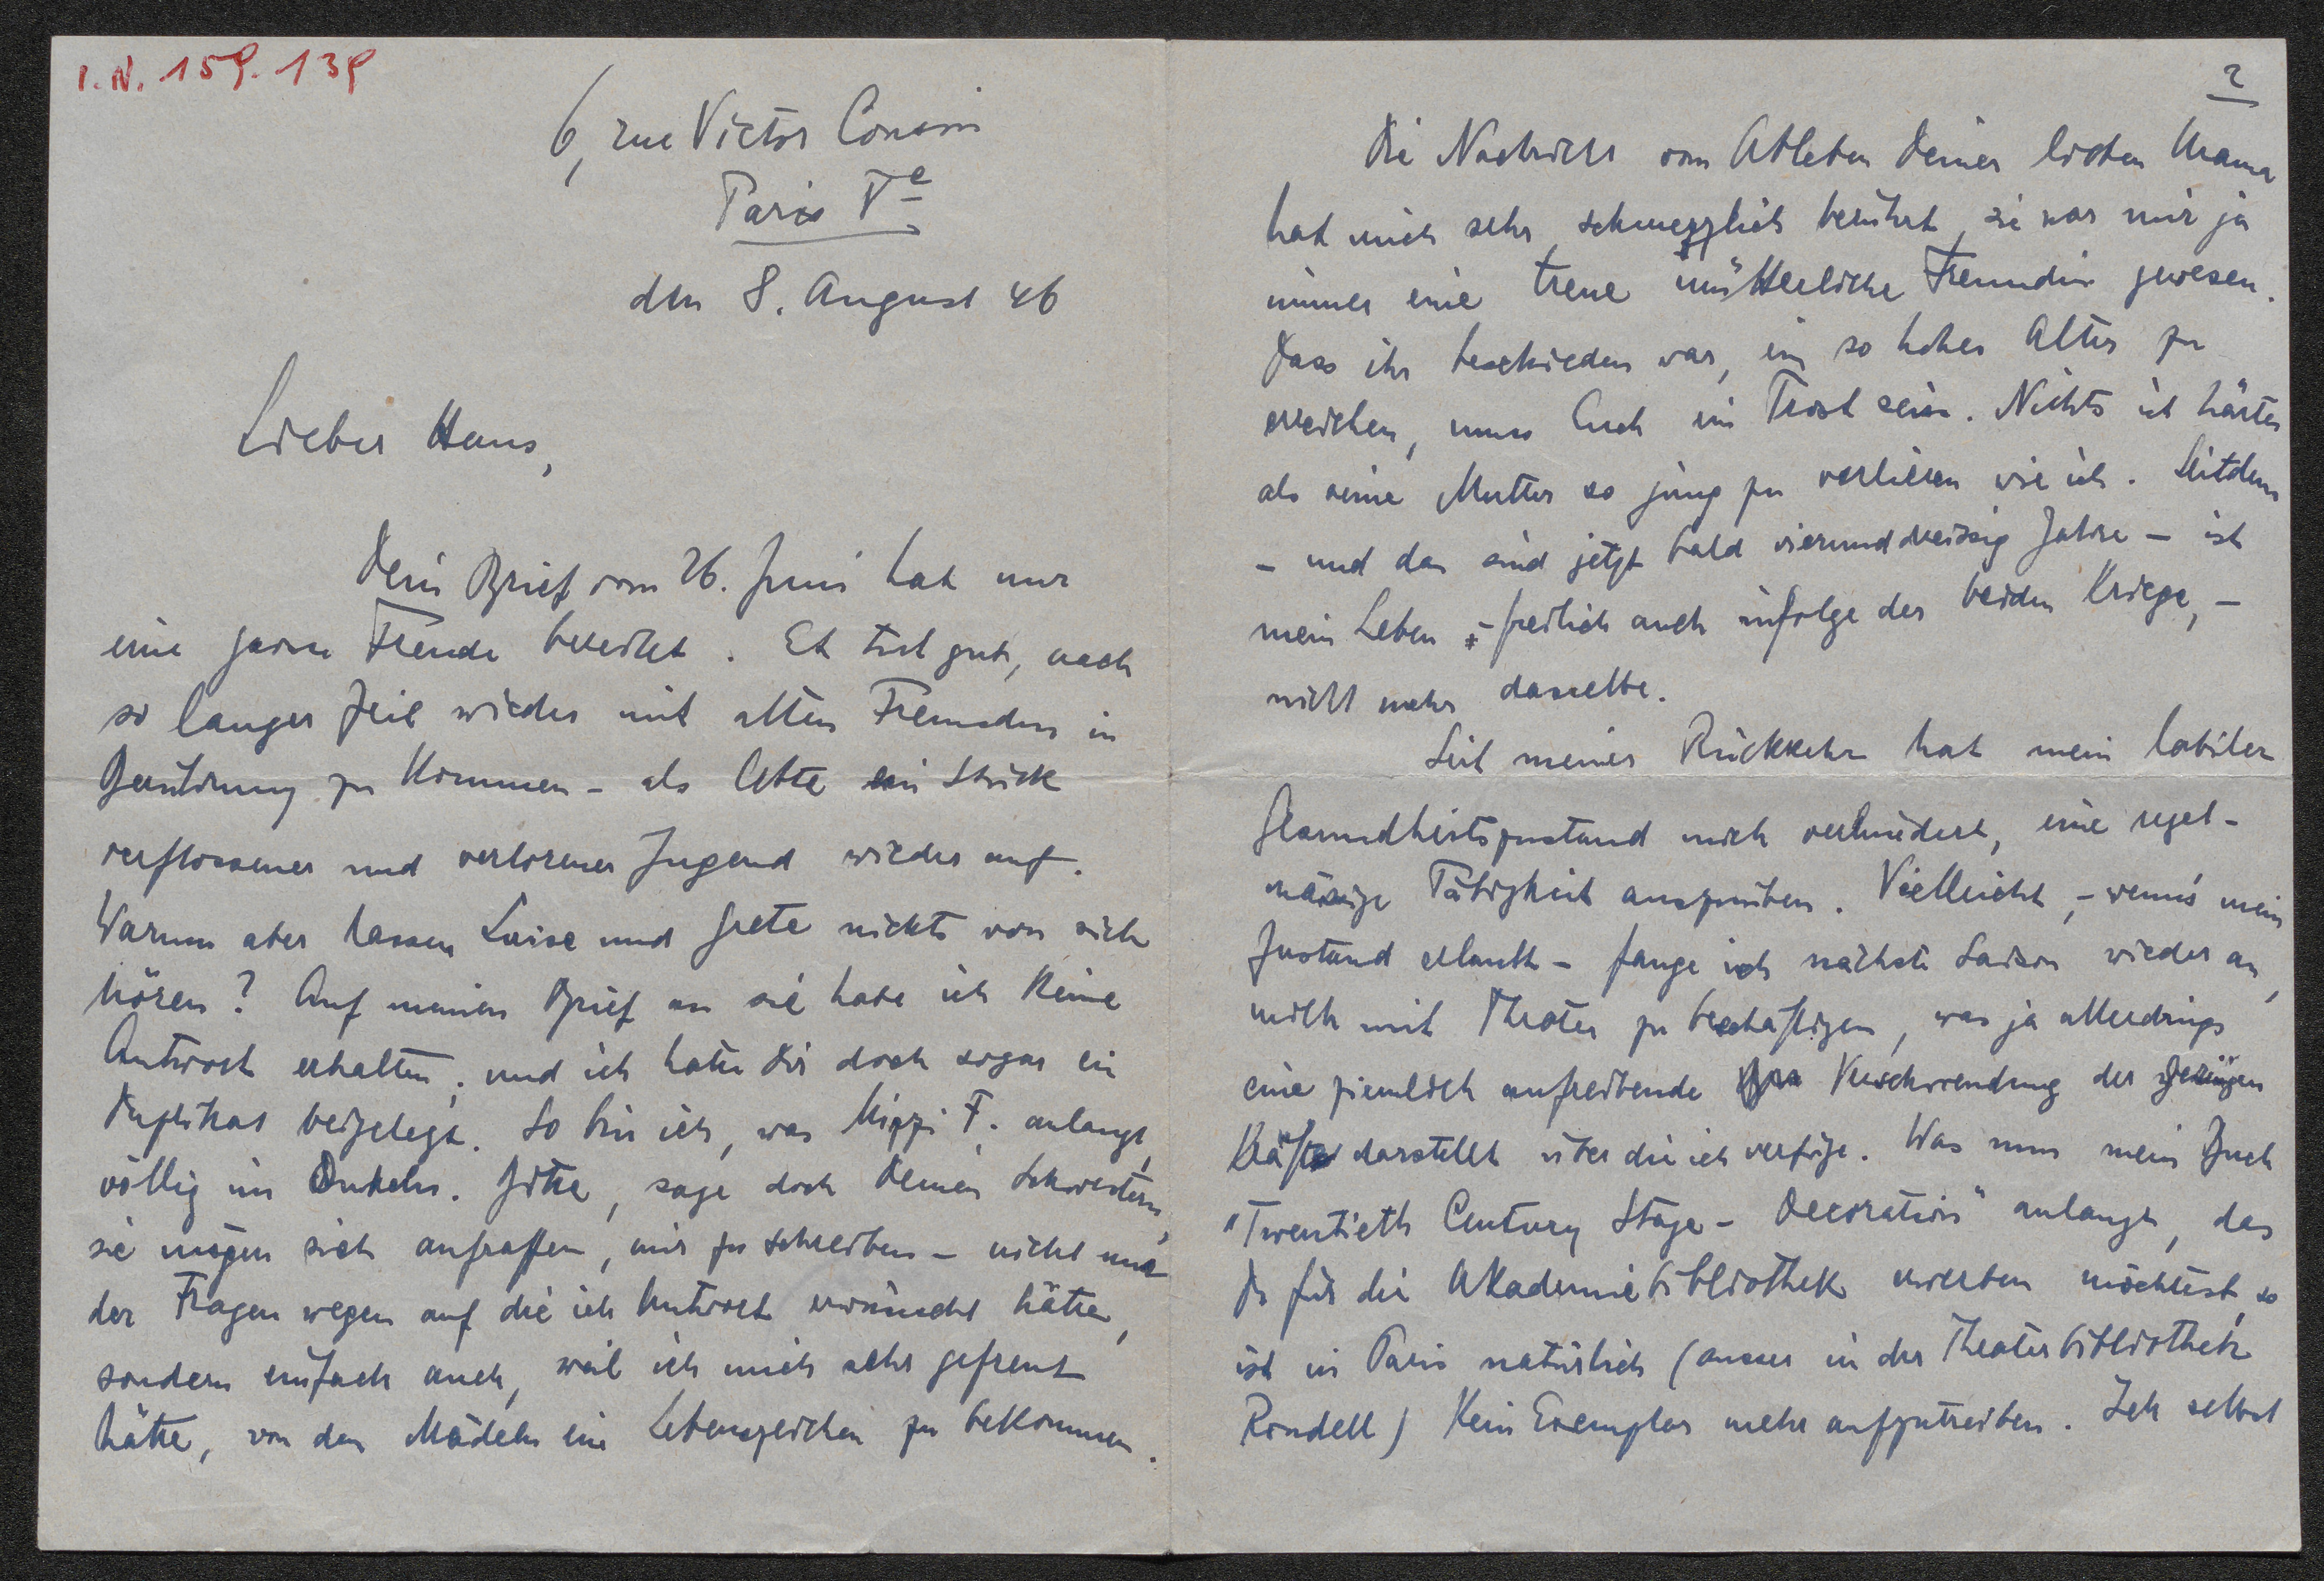 I. N. 159. 139
6, rue Victor Cousin
Paris Ve
den 8. August 46
Lieber Hans,
Dein Brief vom 26. Juni hat mir
eine grosse Freude bereitet. Es tut gut, nach
so langer Zeit wieder mit alten Freunden in
Berührung zu kommen – als lebte ein Stück
verflossener und verlorener Jugend wieder auf.
Warum aber lassen Luise und Grete nichts von sich
hören? Auf meinen Brief an sie habe ich keine
Antwort erhalten, und ich hatte Dir doch sogar ein
Duplikat beigelegt. So bin ich, was Mizzi F. anlangt,
völlig im Dunkeln. Bitte, sage doch Deinen Schwestern,
sie mögen sich aufraffen, mir zu schreiben – nicht nur
der Fragen wegen auf die ich Antwort erwünscht hätte,
sondern einfach auch, weil ich mich sehr gefreut
hätte, von den Mädeln ein Lebenszeichen zu bekommen.
2
Die Nachricht vom Ableben Deiner lieben Mama
hat mich sehr schmerzlich berührt, sie war mir ja
immer eine treue mütterliche Freundin gewesen.
Dass ihr beschieden war, ein so hohes Alter zu
erreichen, muss Euch ein Trost sein. Nichts ist härter
als seine Mutter so jung zu verlieren wie ich. Seitdem
– und das sind jetzt bald vierunddreissig Jahre – ist
mein Leben – freilich auch infolge der beiden Kriege, –
nicht mehr dasselbe.
Seit meiner Rückkehr hat mein labiler
Gesundheitszustand mich verhindert, eine regel-
mässige Tätigkeit auszuüben. Vielleicht, – wenn's mein
Zustand erlaubt – fange ich nächste Saison wieder an,
mich mit Theater zu beschäftigen, was ja allerdings
eine ziemlich aufreibende Verschwendung der geringen
Kräfte darstellt über die ich verfüge. Was nun mein Buch
"Twentieth Century Stage-Decoration" anlangt, das
Du für die Akademiebibliothek erwerben möchtest, so
ist in Paris natürlich (ausser in der Theaterbibliothek
Rondell) kein Exemplar mehr aufzutreiben. Ich selbst